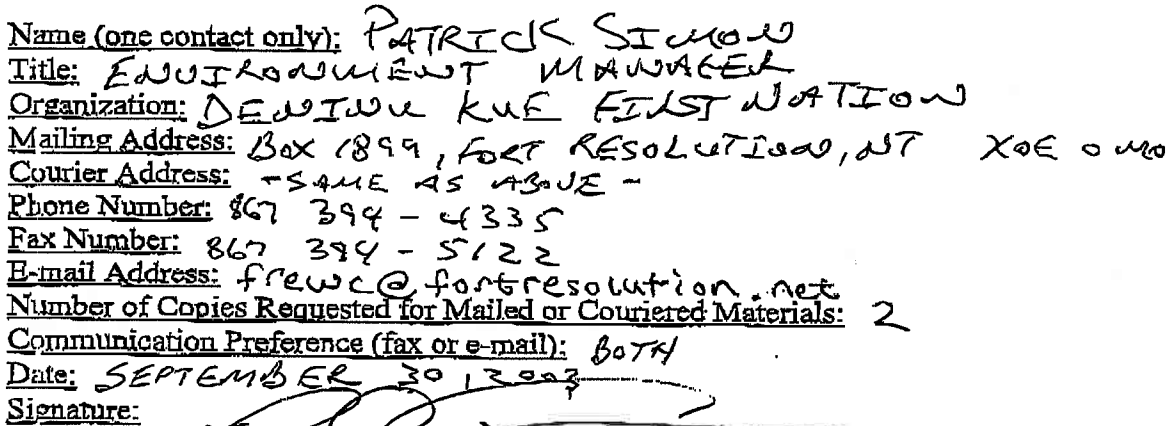 Name (one contact only): PATRICK SIMON
Title: ENVIRONMENT MANAGER
Organization: DENINU KUE FIRST NATION
Mailing Address: BOX 1899, FORT RESOLUTION, NT X0E 0M0
Courier Address: - SAME AS ABOVE -
Phone Number: 867 394 - 4335
Fax Number: 867 394 - 5122
E-mail Address: frewc@fortresolution.net
Number of Copies Requested for Mailed or Couriered Materials: 2
Communication Preference (fax or e-mail): BOTH
Date: SEPTEMBER 30, 2003
Signature: